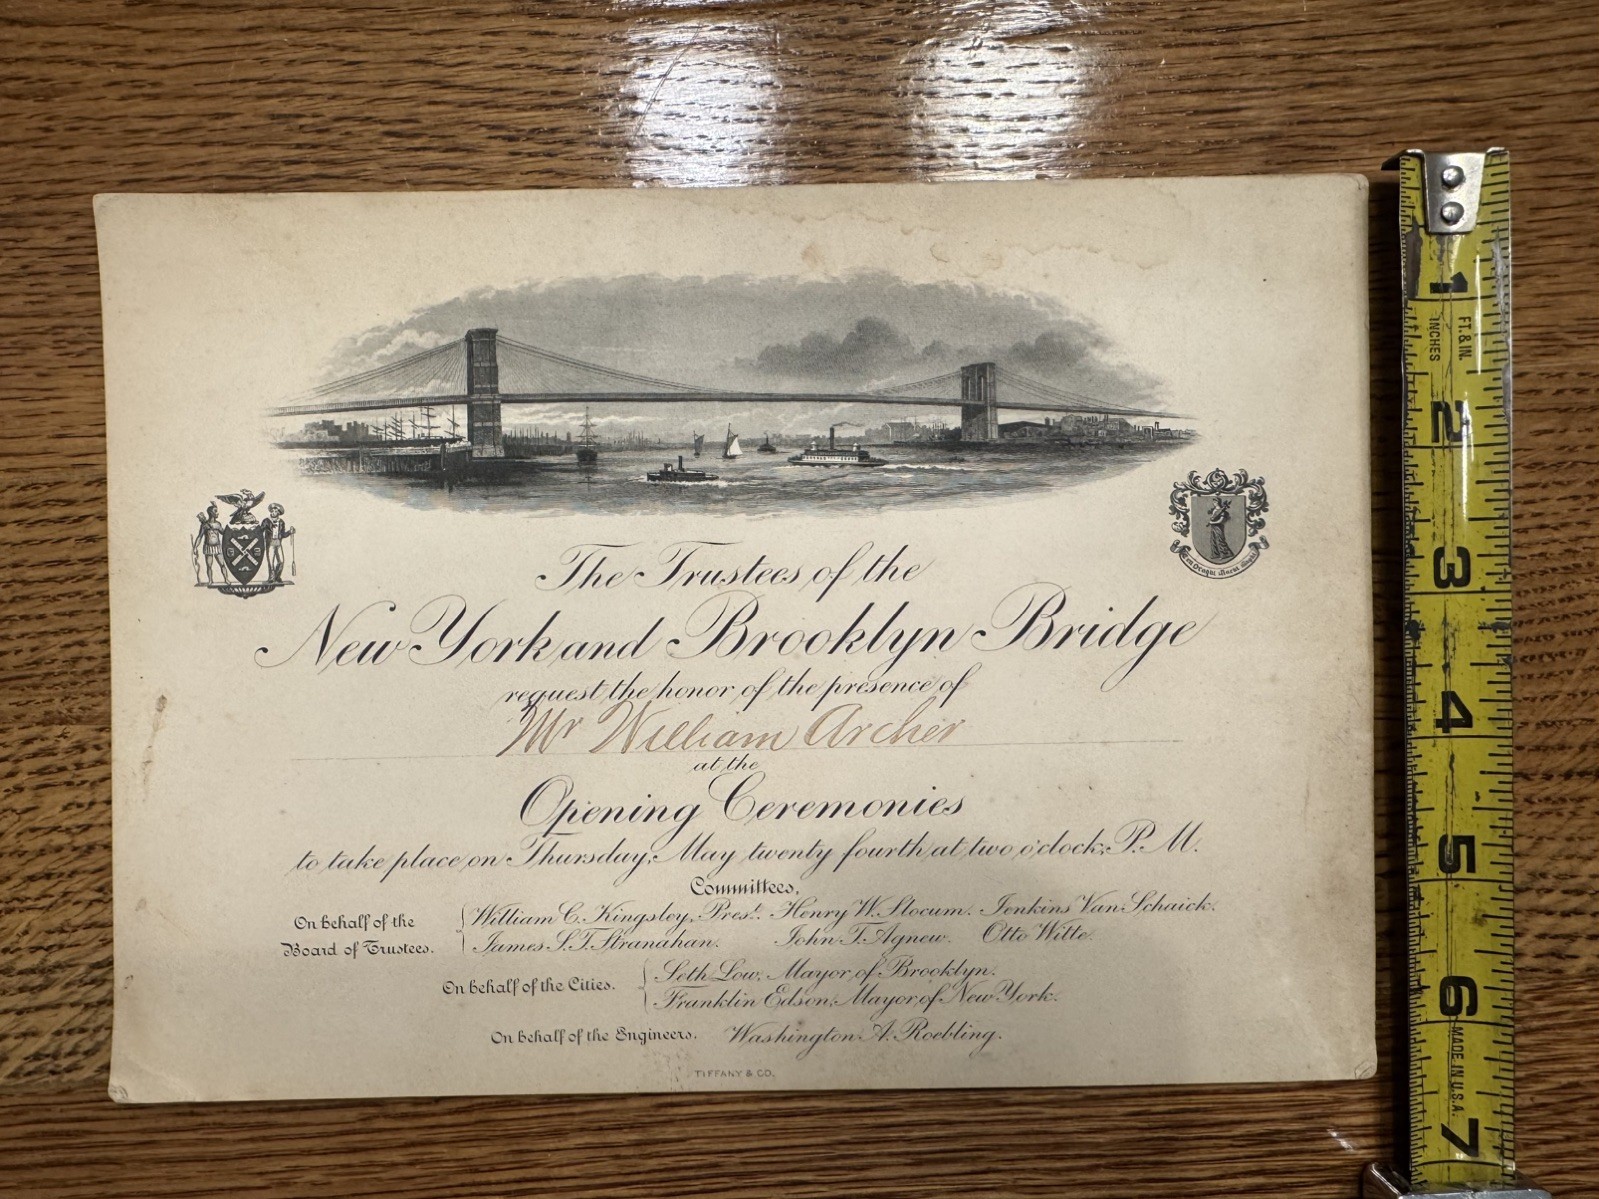 The Trustees of the
New York and Brooklyn Bridge
request the honor of the presence of
Mr William Archer
at the
Opening Ceremonies
to take place on Thursday, May twenty fourth at two o'clock, P.M.
Committees,
On behalf of the Board of Trustees.
William C. Kingsley, Prest. Henry W. Slocum. Jenkins Van Schaick.
James S.T. Stranahan. John T. Agnew. Otto Witte.
On behalf of the Cities.
Seth Low, Mayor of Brooklyn.
Franklin Edson, Mayor of New York.
On behalf of the Engineers. Washington A. Roebling.
TIFFANY & CO.
1
FT. & IN.
INCHES
2
3
4
5
6
MADE IN U.S.A.
7